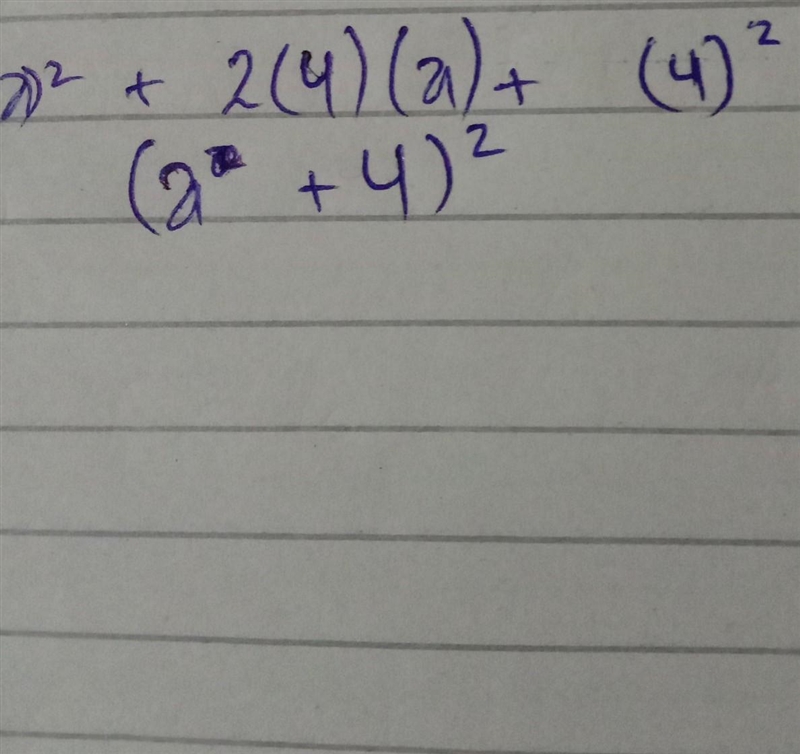 a² + 2(4)(a) + (4)²
(a + 4)²